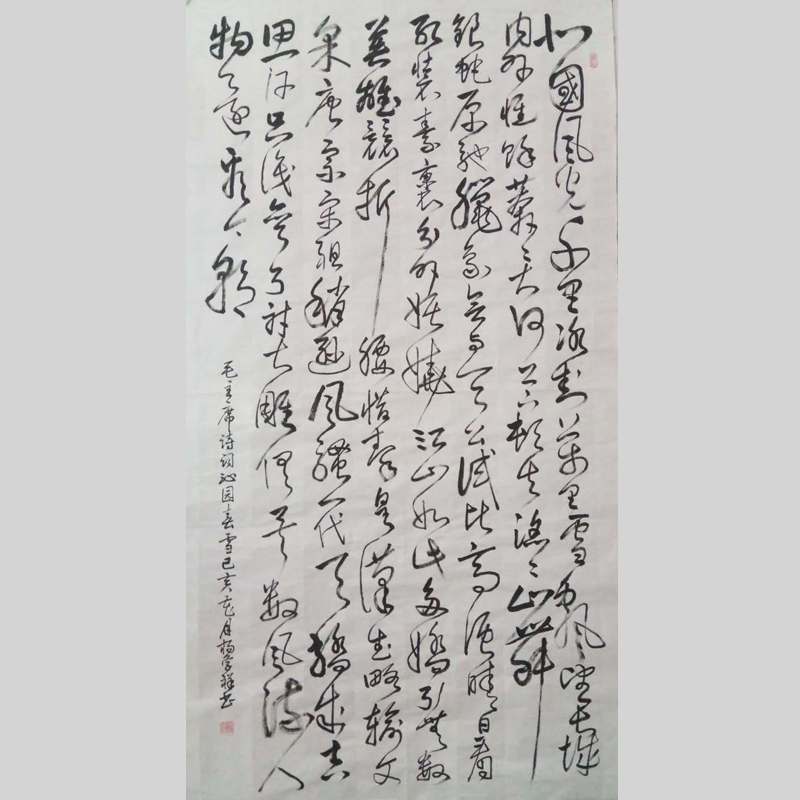 北國风光千里冰封万里雪飘风望长城
内外惟馀莽々大河上下顿失滔々山舞
银蛇原驰腊象欲与天公试比高须晴日看
红装素裹分外妖娆江山如此多娇引无数
英雄竞折腰惜秦皇汉武略输文
采唐宗宋祖稍逊风骚一代天骄成吉
思汗只识弯弓射大雕俱矣数风流人
物还看今朝
毛主席诗词沁园春雪己亥花月杨学祥书